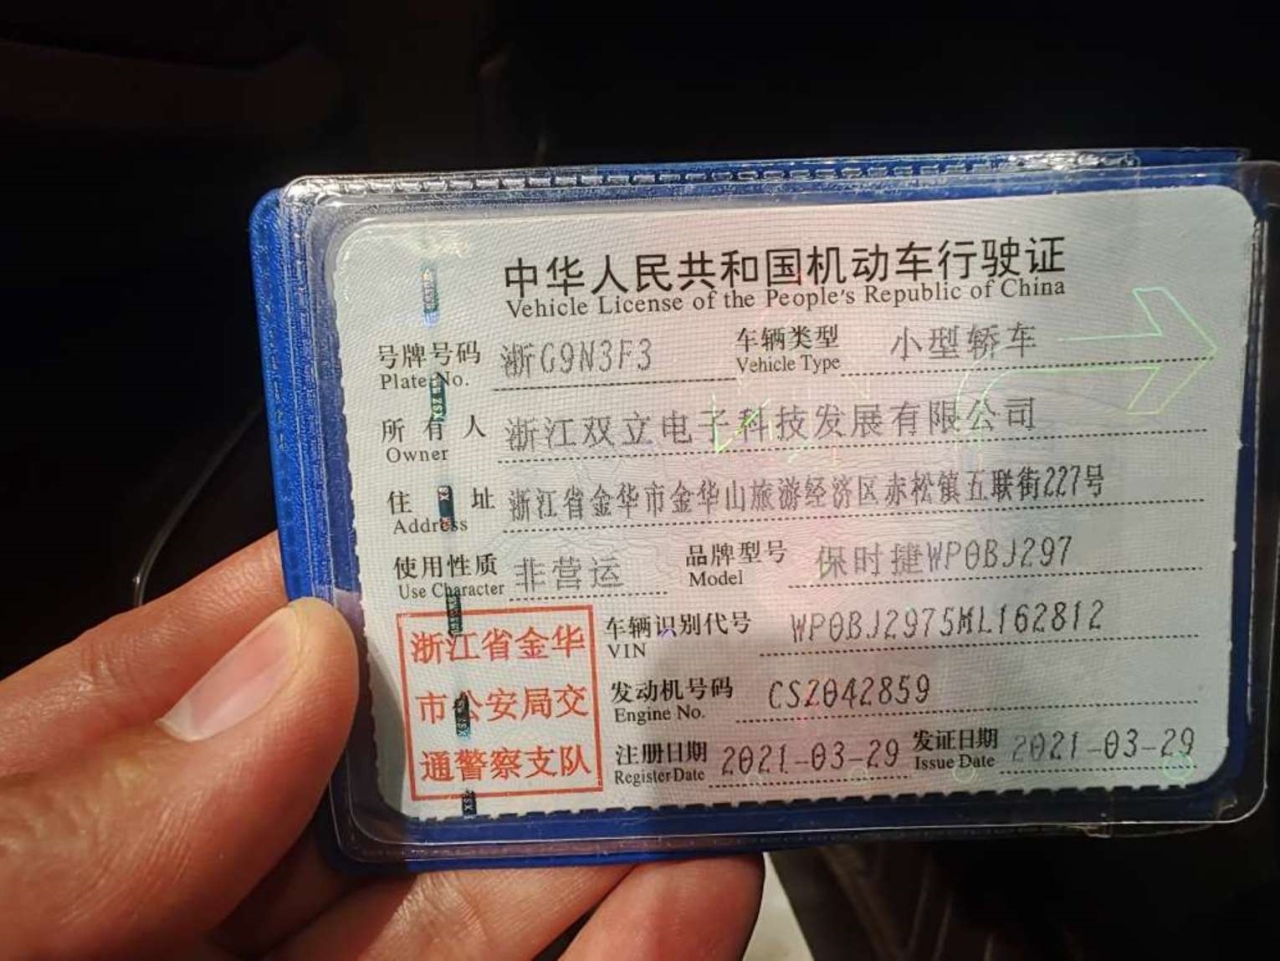 中华人民共和国机动车行驶证
Vehicle License of the People's Republic of China
号牌号码 浙G9N3F3 车辆类型 小型轿车
Plate No. Vehicle Type
所有人 浙江双立电子科技发展有限公司
Owner
住址 浙江省金华市金华山旅游经济区赤松镇五联街227号
Address
使用性质 非营运 品牌型号 保时捷WP0BJ297
Use Character Model
浙江省金华 车辆识别代号 WP0BJ2975ML162812
VIN
市公安局交 发动机号码 CSZ042859
Engine No.
通警察支队 注册日期 2021-03-29 发证日期 2021-03-29
Register Date Issue Date